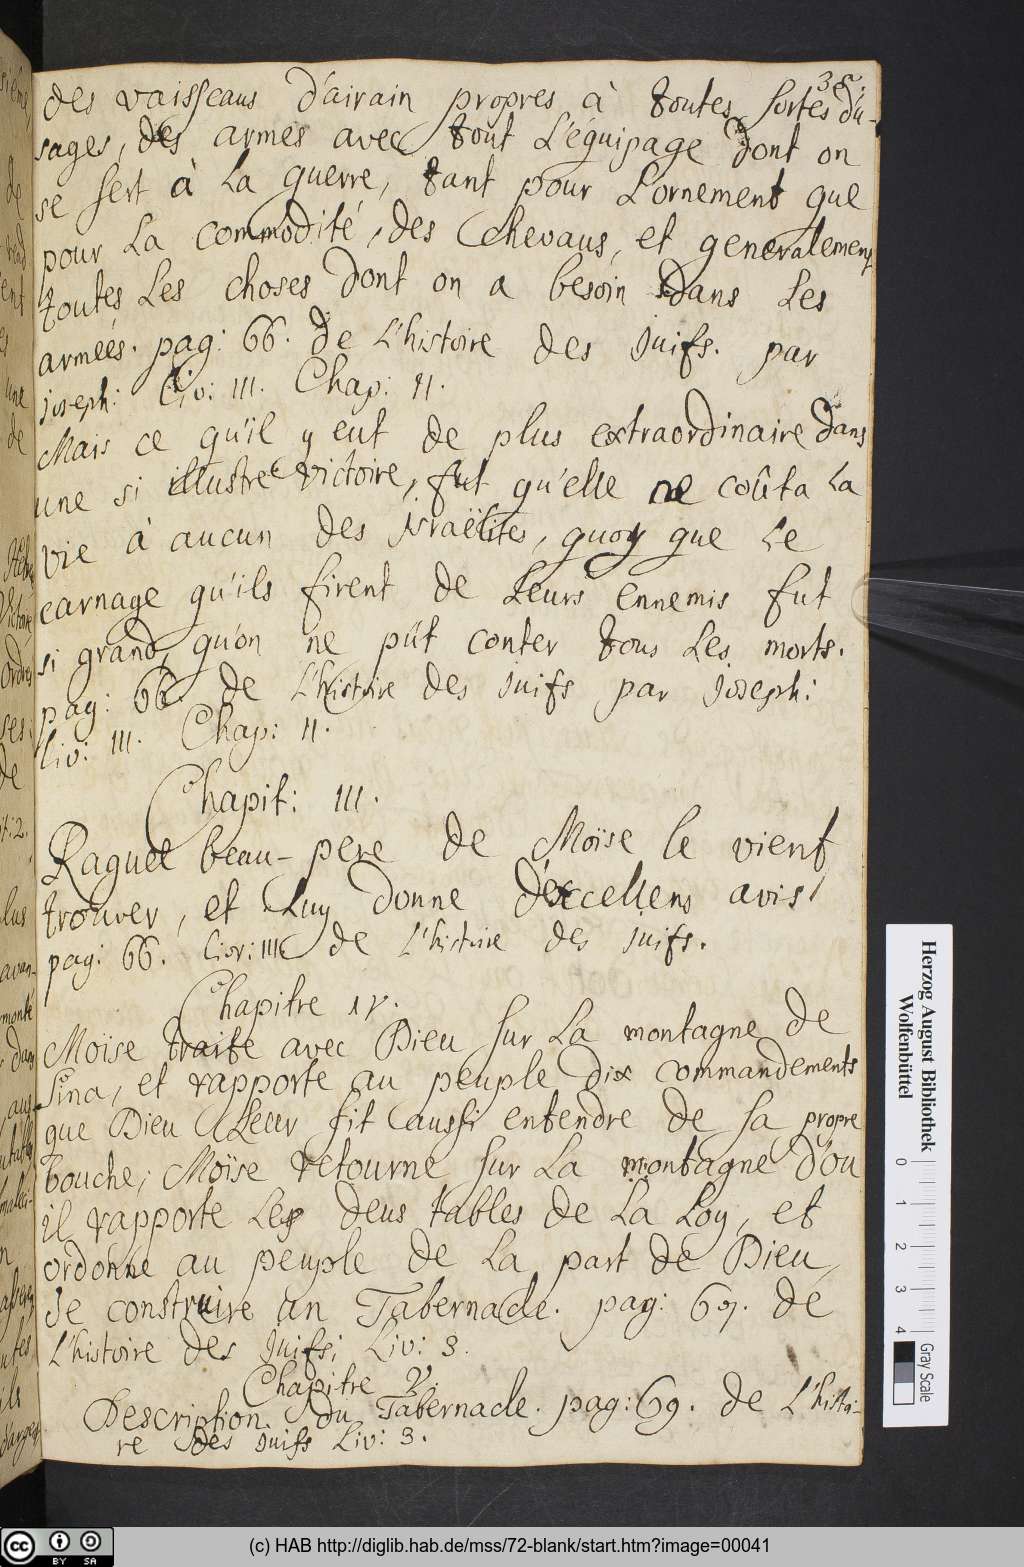 35.
des vaisseaus d'airain propres à toutes sortes d'u-
sages, des armes avec tout L'équipage dont on
se sert à La guerre, tant pour L'ornement que
pour La commodité, des Chevaus, et generalement
toutes Les choses dont on a besoin dans Les
armées. pag: 66. de L'histoire des Juifs. par
joseph: Liv: III. Chap: II.
Mais ce qu'il y eut de plus extraordinaire dans
une si illustre victoire, fut qu'elle ne coûta La
vie à aucun des jsraëlites, quoy que Le
carnage qu'ils firent de Leurs ennemis fut
si grand, qu'on ne pût conter tous Les morts.
pag: 66. de L'histoire des juifs par joseph:
Liv: III. Chap: II.
Chapit: III.
Raguel beau-pere de Moïse le vient
trouver, et Luy donne d'excellens avis
pag: 66. Livr: III de L'histoire des juifs.
Chapitre IV.
Moïse traite avec Dieu sur La montagne de
Sina, et rapporte au peuple dix commandements
que Dieu Leur fit aussi entendre de sa propre
bouche; Moïse retourne sur La montagne d'ou
il rapporte Les deus tables de La Loy, et
ordonne au peuple de La part de Dieu,
de construire un Tabernacle. pag: 67. de
L'histoire des Juifs; Liv: 3.
Chapitre V.
Description du Tabernacle. pag: 69. de L'histoi-
re des juifs Liv: 3.
Herzog August Bibliothek
Wolfenbüttel
0 1 2 3 4
Gray Scale
cc BY SA
(c) HAB http://diglib.hab.de/mss/72-blank/start.htm?image=00041